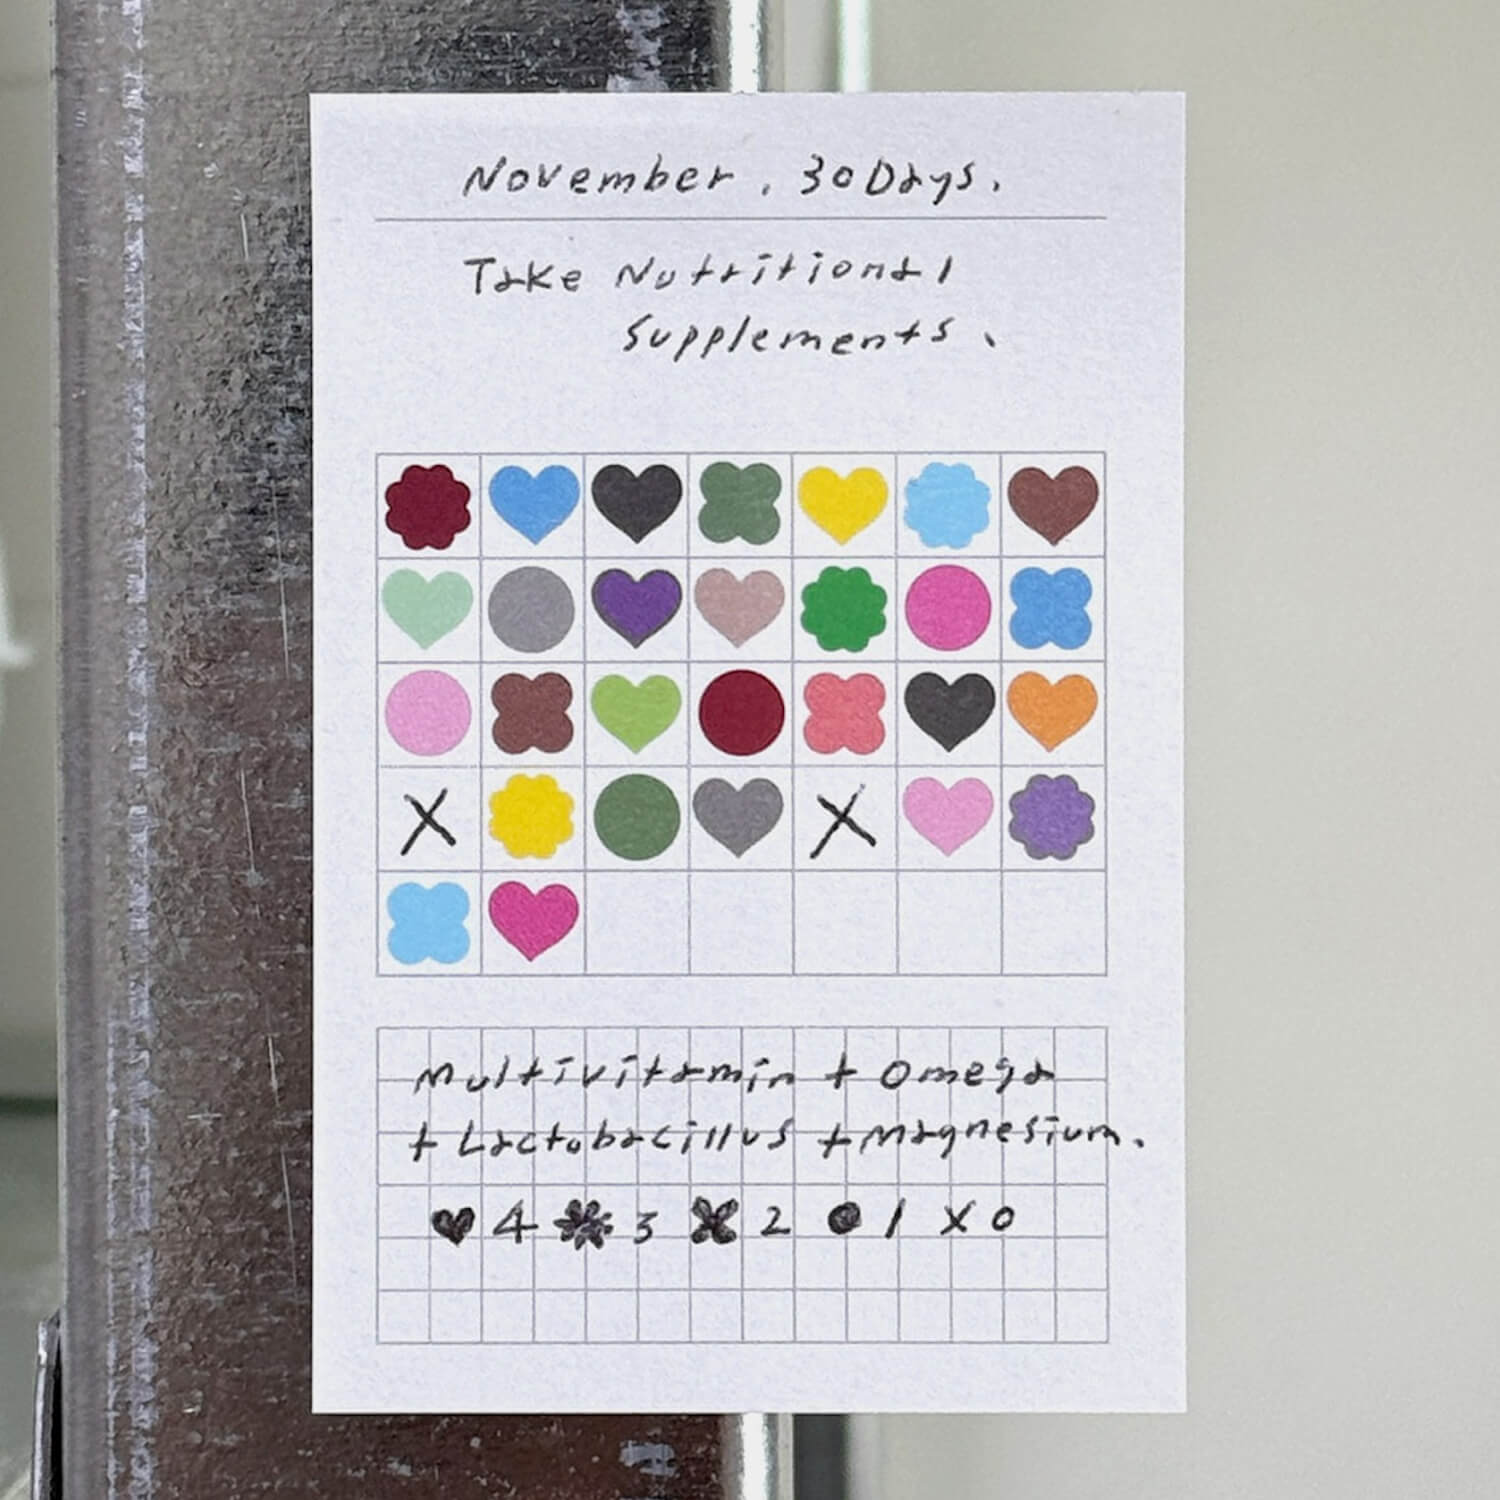 November. 30Days.
Take Nutritional
Supplements.
X X
Multivitamin + Omega
+ Lactobacillus + Magnesium.
♥ 4 ✽ 3 ✖ 2 ● 1 X 0